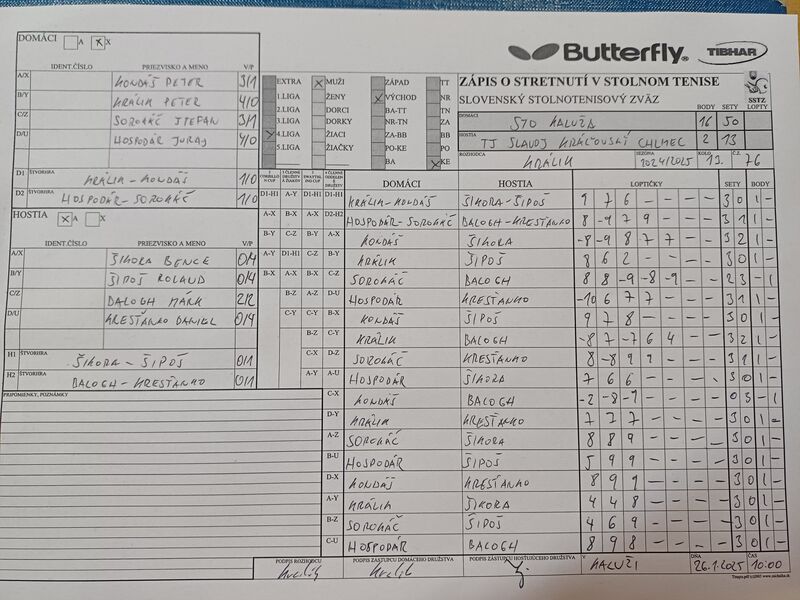 DOMÁCI A X X
IDENT.ČÍSLO PRIEZVISKO A MENO V/P
A/X KONDÁŠ PETER 3/1
B/Y KRÁLIK PETER 4/0
C/Z SOROKÁČ ŠTEFAN 3/1
D/U HOSPODÁR JURAJ 4/0
D1 ŠTVORHRA KRÁLIK - KONDÁŠ 1/0
D2 ŠTVORHRA HOSPODÁR - SOROKÁČ 1/0
HOSTIA X A X
IDENT.ČÍSLO PRIEZVISKO A MENO V/P
A/X ŠIKORA BENCE 0/4
B/Y ŠIPOŠ ROLAND 0/4
C/Z BALOGH MÁRK 2/2
D/U KRESŤANKO DANIEL 0/4
H1 ŠTVORHRA ŠIKORA - ŠIPOŠ 0/1
H2 ŠTVORHRA BALOGH - KRESŤANKO 0/1
PRIPOMIENKY, POZNÁMKY
EXTRA X MUŽI ZÁPAD TT
1.LIGA ŽENY X VÝCHOD NR
2.LIGA DORCI BA-TT TN
3.LIGA DORKY NR-TN ZA
X 4.LIGA ŽIACI ZA-BB BB
5.LIGA ŽIAČKY PO-KE PO
BA X KE
Butterfly TIBHAR
ZÁPIS O STRETNUTÍ V STOLNOM TENISE
SLOVENSKÝ STOLNOTENISOVÝ ZVÄZ
SSTZ
BODY SETY LOPTY
DOMÁCI STO KALUŽA 16 50
HOSTIA TJ SLAVOJ KRÁĽOVSKÝ CHLMEC 2 13
ROZHODCA KRÁLIK SEZÓNA 2024/2025 KOLO Č.Z. 76
DOMÁCI HOSTIA LOPTIČKY SETY BODY
D1-H1 A-Y D1-H1 D1-H1 KRÁLIK-KONDÁŠ ŠIKORA-ŠIPOŠ 9 7 6 - - - - 3 0 1 -
A-X B-X A-X D2-H2 HOSPODÁR-SOROKÁČ BALOGH-KRESŤANKO 8 -9 7 9 - - - 3 1 1 -
B-Y C-Z B-Y A-X KONDÁŠ ŠIKORA -8 -9 8 7 7 - - 3 2 1 -
A-Y D1-H1 C-Z B-Y KRÁLIK ŠIPOŠ 8 6 2 - - - - 3 0 1 -
B-X A-X B-X C-Z SOROKÁČ BALOGH 8 8 -9 -8 -9 - - 2 3 - 1
B-Z A-Z D-U HOSPODÁR KRESŤANKO -10 6 7 7 - - - 3 1 1 -
C-Y B-Y B-X KONDÁŠ ŠIPOŠ 9 7 8 - - - - 3 0 1 -
B-Z C-Y KRÁLIK BALOGH -8 7 -7 6 4 - - 3 2 1 -
C-X D-Z SOROKÁČ KRESŤANKO 8 -8 9 9 - - - 3 1 1 -
A-Y A-U HOSPODÁR ŠIKORA 7 6 6 - - - - 3 0 1 -
C-X KONDÁŠ BALOGH -2 -8 -9 - - - - 0 3 - 1
D-Y KRÁLIK KRESŤANKO 7 7 7 - - - - 3 0 1 -
A-Z SOROKÁČ ŠIKORA 8 8 9 - - - - 3 0 1 -
B-U HOSPODÁR ŠIPOŠ 5 9 9 - - - - 3 0 1 -
D-X KONDÁŠ KRESŤANKO 8 9 9 - - - - 3 0 1 -
A-Y KRÁLIK ŠIKORA 4 4 8 - - - - 3 0 1 -
B-Z SOROKÁČ ŠIPOŠ 4 6 9 - - - - 3 0 1 -
C-U HOSPODÁR BALOGH 8 9 8 - - - - 3 0 1 -
PODPIS ROZHODCU PODPIS ZÁSTUPCU DOMÁCEHO DRUŽSTVA PODPIS ZÁSTUPCU HOSŤUJÚCEHO DRUŽSTVA V KALUŽI DŇA 26.1.2025 ČAS 10:00